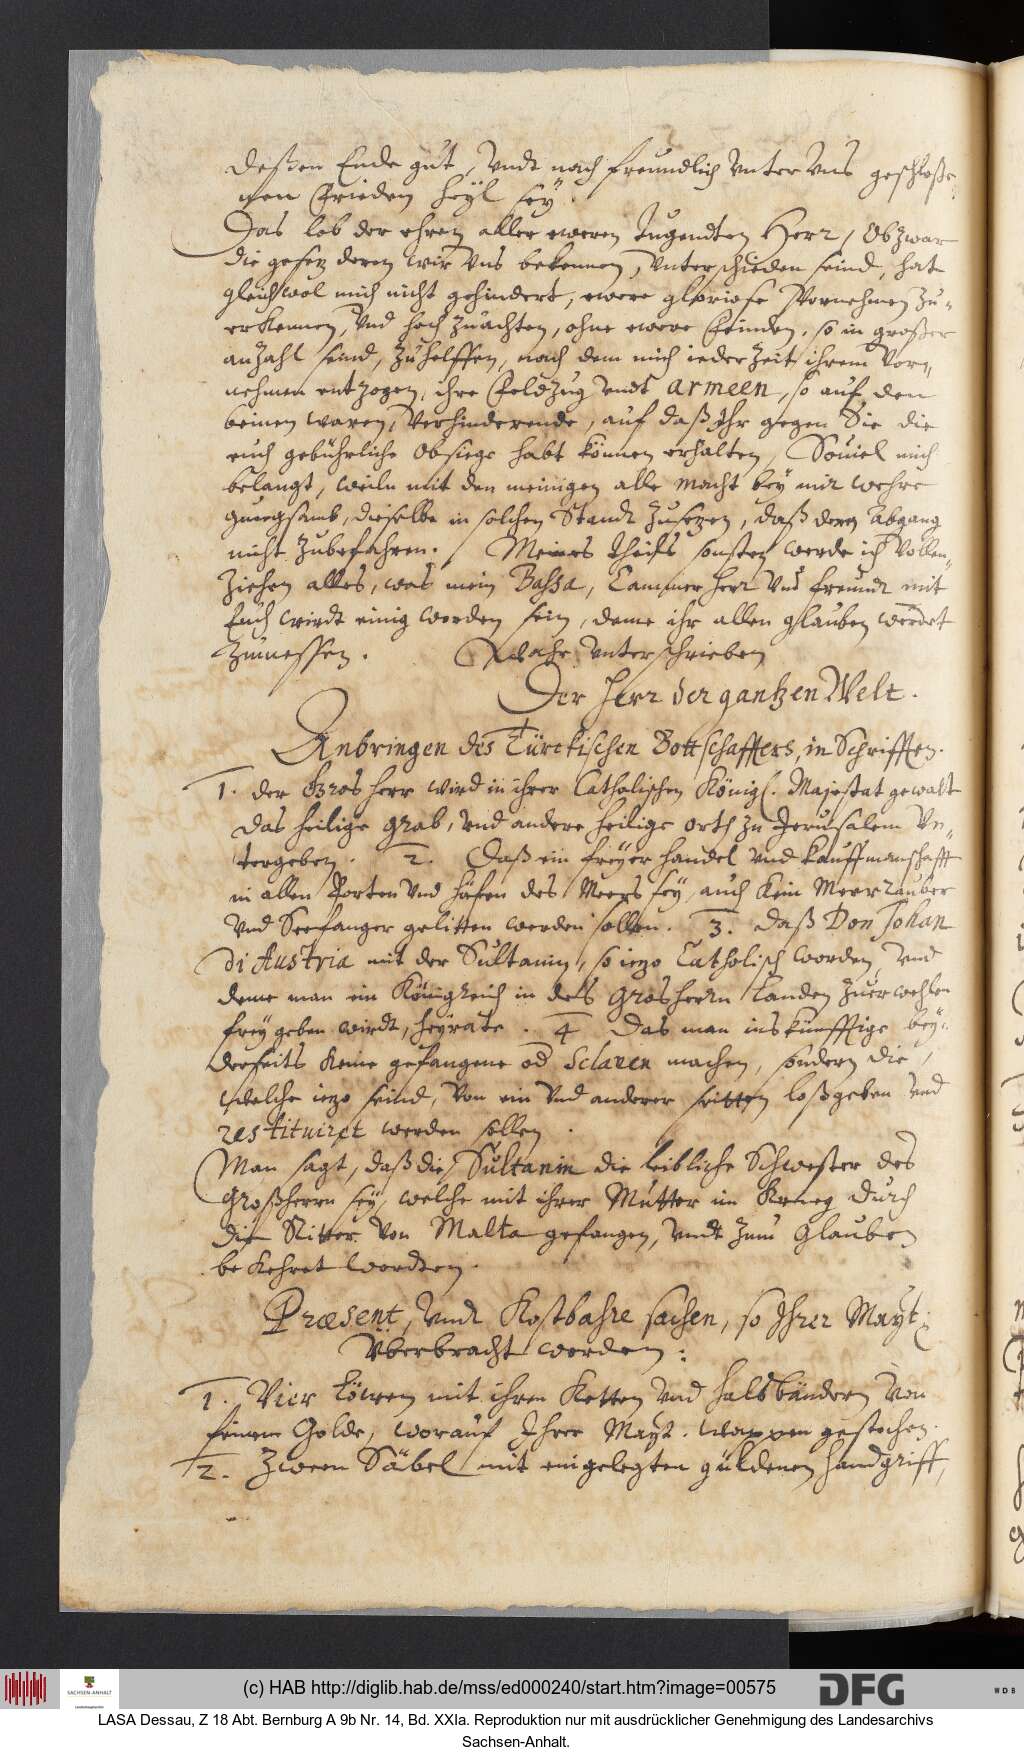 deßen Ende gut, undt nach freundlich unter uns geschloße-
nen Frieden heyl sey
Das lob der ehren aller eweren Tugendten Herr, Ob zwar
die gesez deren wir uns bekennen, unterschieden seind, hat
gleichwol mich nicht gehindert, ewere gloriose Vornehmen zu-
erkennen, und hoch zuachten, ohne ewere Feinden, so in großer
anzahl seind, zuhelffen, nach dem mich iederzeit ihrem Vor-
nehmen entzogen, ihre Feldzug undt armeen, so auf den
beinen waren, verhinderende, auf daß Ihr gegen Sie die
euch gebührliche Obsiege habt können erhalten, Souiel mich
belangt, weiln mit den meinigen alle macht bey mir wehre
gnugsamb, dieselbe in solchen Standt zusezen, daß deren Abgang
nicht zubefahren. Meines theils sonsten werde ich vollen-
ziehen alles, was mein Bassa, Cammer herr und freundt mit
Euch wirdt einig worden sein, deme ihr allen glauben werdet
zumessen. unterschrieben
Der Herr der gantzen Welt.
Anbringen des Türckischen Bottschaffters, in Schrifften.
1. der Gros herr wird in ihrer Catholischen Königl. Majestat gewalt
das heilige grab, und andere heilige orth zu Jerusalem un-
tergeben. 2. Daß ein freyer handel und kauffmanschafft
in allen Porten und häfen des Meers sey, auch kein Meerrauber
und Seefanger gelitten werden sollen. 3. daß Don Johan
di Austria mit der Sultanin, so iezo Catholisch worden, und
deme man ein Königreich in des grosherrn Landen zuerwehlen
frey geben wirdt, heyrate. 4 Das man ins künfftige bey-
derseits keine gefangene od Sclaven machen, sondern die,
welche iezo seind, von ein und anderer seitten loßgeben und
restituiret werden sollen.
Man sagt, daß die Sultanin die leibliche Schwester des
Großherrn sey, welche mit ihrer Mutter im Krieg durch
die Ritter von Malta gefangen, undt zum Glauben
bekehret wordten.
Præsent, undt Kostbahre sachen, so Ihrer Mayt:
überbracht worden:
1. Vier Löwen mit ihren Ketten und halsbändern von
feinem Golde, worauf Ihrer Mayt. wappen gestochen.
2. Zween Säbel mit eingelegten güldenen handgriff,
SACHSEN-ANHALT
(c) HAB http://diglib.hab.de/mss/ed000240/start.htm?image=00575
DFG
WDB
LASA Dessau, Z 18 Abt. Bernburg A 9b Nr. 14, Bd. XXIa. Reproduktion nur mit ausdrücklicher Genehmigung des Landesarchivs
Sachsen-Anhalt.